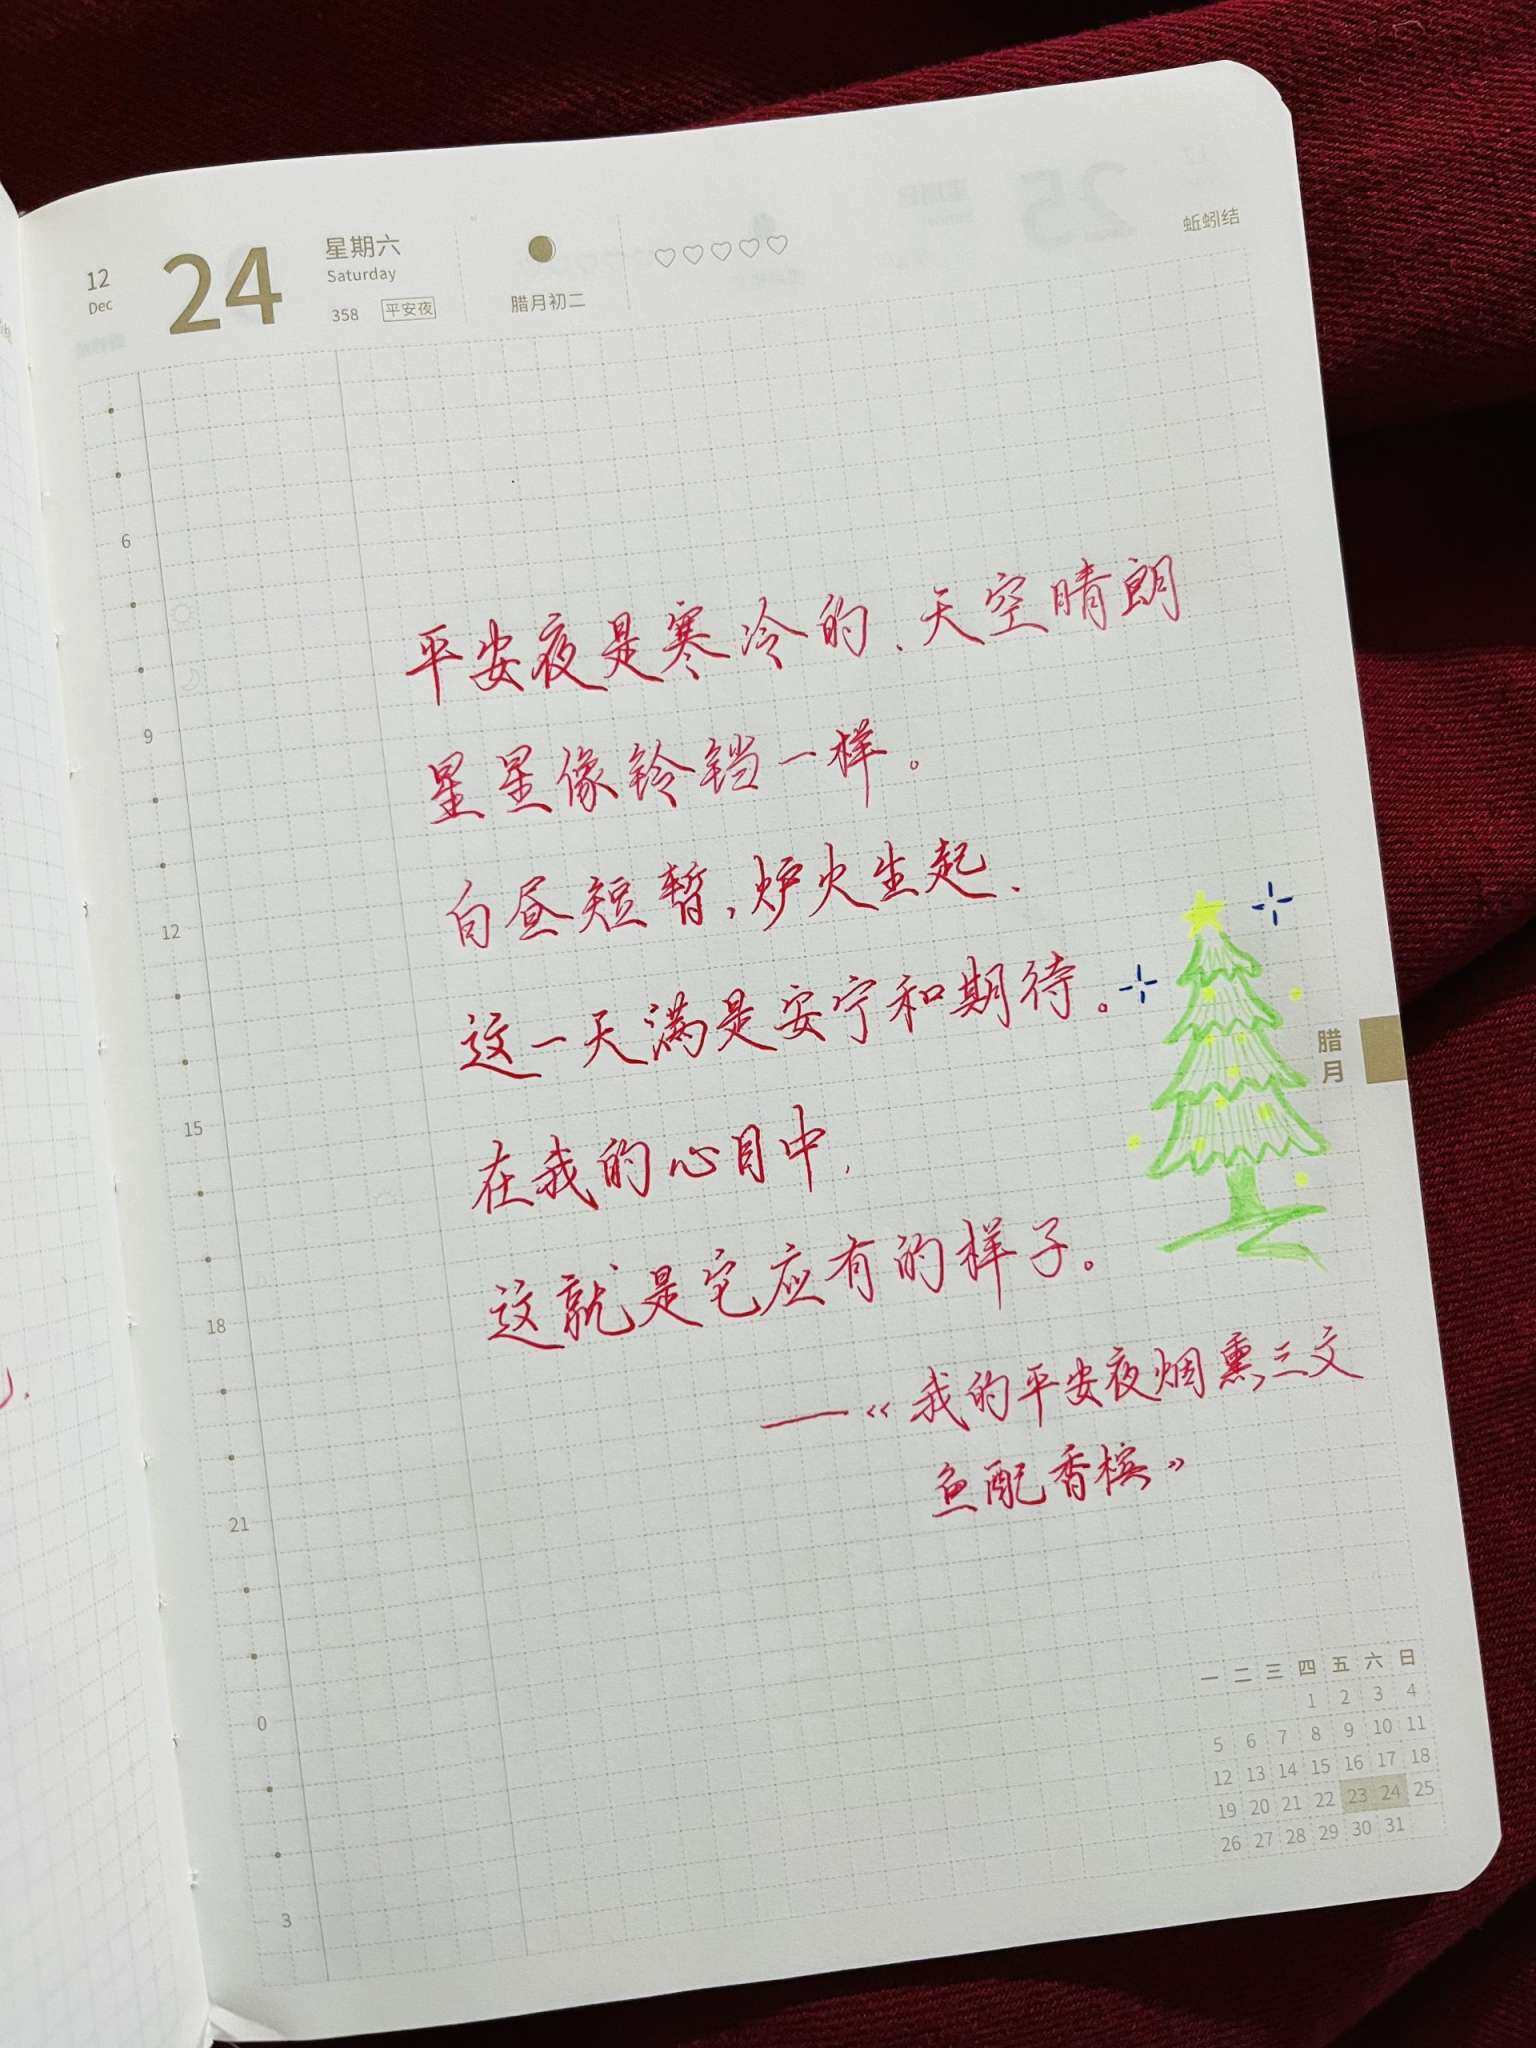 12
Dec
24
星期六
Saturday
358 平安夜
腊月初二
蚯蚓结
6
9
12
15
18
21
0
3
平安夜是寒冷的、天空晴朗
星星像铃铛一样。
白昼短暂,炉火生起、
这一天满是安宁和期待。
在我的心目中,
这就是它应有的样子。
——《我的平安夜烟熏三文
鱼配香槟》
腊月
一 二 三 四 五 六 日
1 2 3 4
5 6 7 8 9 10 11
12 13 14 15 16 17 18
19 20 21 22 23 24 25
26 27 28 29 30 31